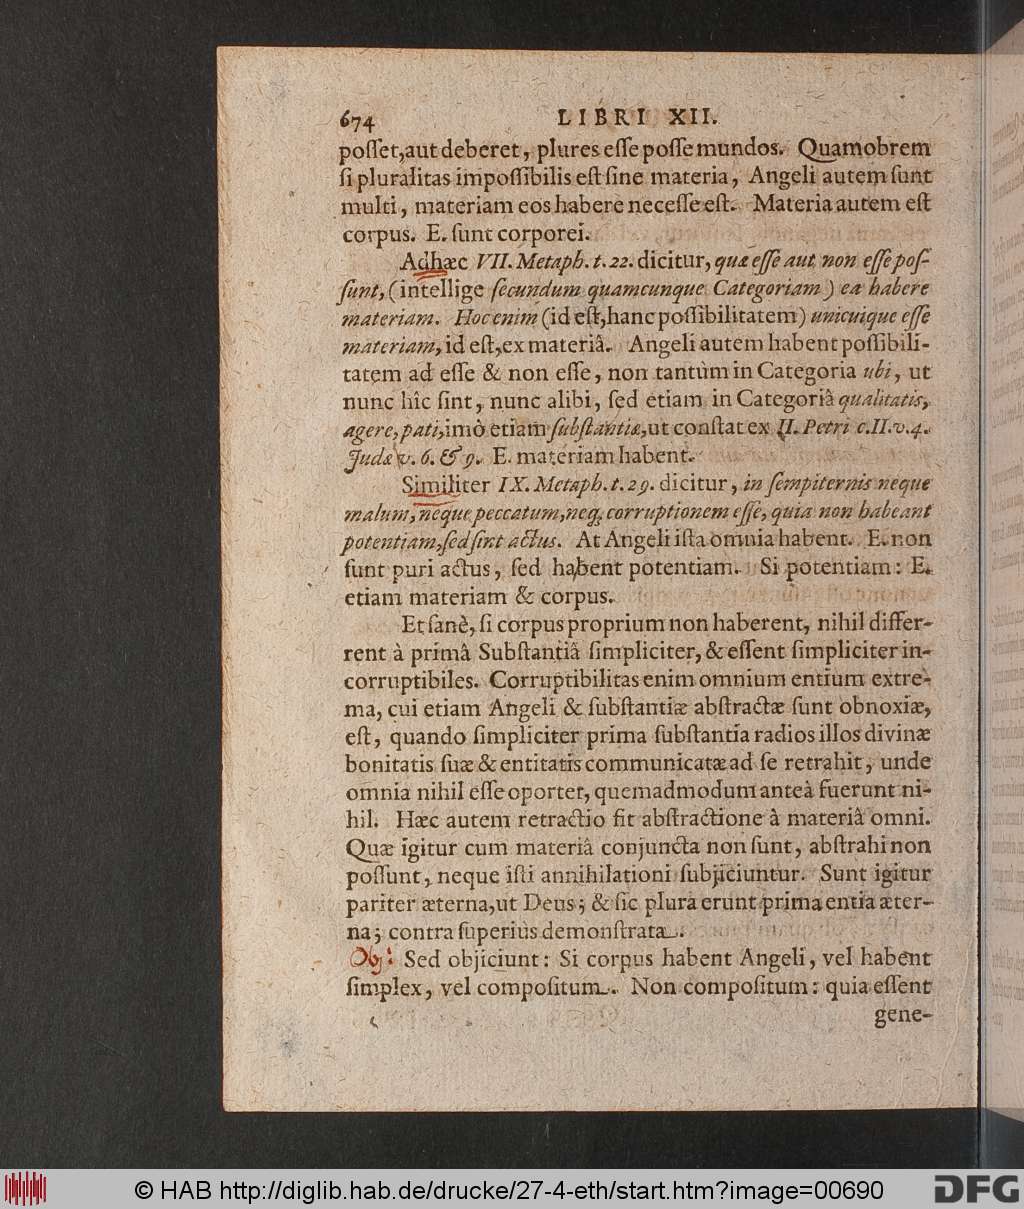 674 LIBRI XII.
poſſet, aut deberet, plures eſſe poſſe mundos. Quamobrem
ſi pluralitas impoſſibilis eſt ſine materia, Angeli autem ſunt
multi, materiam eos habere neceſſe eſt. Materia autem eſt
corpus. E. ſunt corporei.
Adhæc VII. Metaph. t. 22. dicitur, quæ eſſe aut non eſſe poſ-
ſunt, (intellige ſecundum quamcunque Categoriam) ea habere
materiam. Hoc enim (id eſt, hanc poſſibilitatem) unicuique eſſe
materiam, id eſt, ex materiâ. Angeli autem habent poſſibili-
tatem ad eſſe & non eſſe, non tantùm in Categoria ubi, ut
nunc hîc ſint, nunc alibi, ſed etiam in Categoriâ qualitatis,
agere, pati, imò etiam ſubſtantiæ, ut conſtat ex II. Petri c. II. v. 4.
Judæ v. 6. & 9. E. materiam habent.
Similiter IX. Metaph. t. 29. dicitur, in ſempiternis neque
malum, neque peccatum, neq; corruptionem eſſe, quia non habeant
potentiam, ſed ſint actus. At Angeli iſta omnia habent. E. non
ſunt puri actus, ſed habent potentiam. Si potentiam: E.
etiam materiam & corpus.
Et ſanè, ſi corpus proprium non haberent, nihil differ-
rent à primâ Subſtantiâ ſimpliciter, & eſſent ſimpliciter in-
corruptibiles. Corruptibilitas enim omnium entium extre-
ma, cui etiam Angeli & ſubſtantiæ abſtractæ ſunt obnoxiæ,
eſt, quando ſimpliciter prima ſubſtantia radios illos divinæ
bonitatis ſuæ & entitatis communicatæ ad ſe retrahit, unde
omnia nihil eſſe oportet, quemadmodum anteà fuerunt ni-
hil. Hæc autem retractio fit abſtractione à materiâ omni.
Quæ igitur cum materiâ conjuncta non ſunt, abſtrahi non
poſſunt, neque iſti annihilationi ſubjiciuntur. Sunt igitur
pariter æterna, ut Deus; & ſic plura erunt prima entia æter-
na; contra ſuperiùs demonſtrata.
Obj: Sed objiciunt: Si corpus habent Angeli, vel habent
ſimplex, vel compoſitum. Non compoſitum: quia eſſent
gene-
© HAB http://diglib.hab.de/drucke/27-4-eth/start.htm?image=00690
DFG